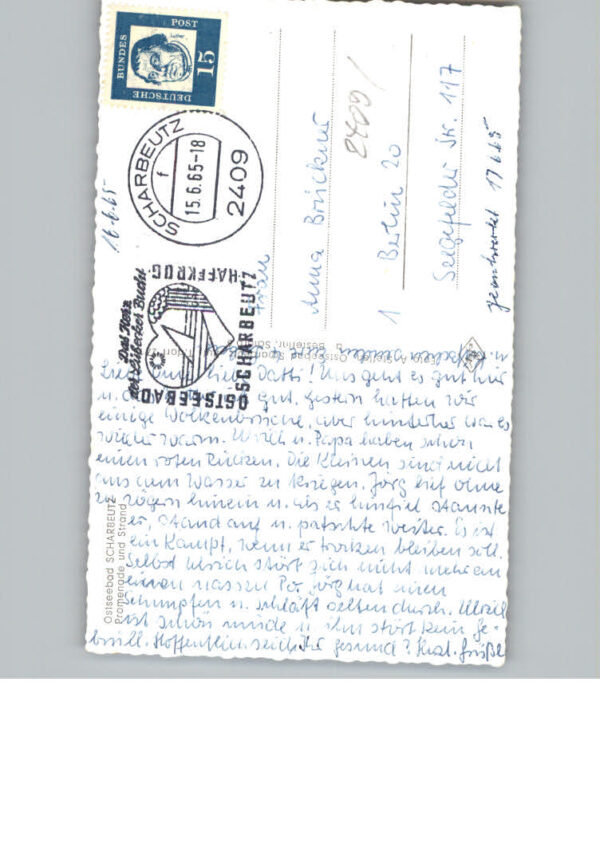 DEUTSCHE
BUNDES
POST
15
Luther
SCHARBEUTZ
f
15.6.65-18
2409
16.6.65
Das Herz
der Lübecker Bucht
HAFFKRUG
OSTSEEBAD SCHARBEUTZ
Frau
Anna Brückner
2409/
1 Berlin 20
Seegefelder Str. 117
beantwortet 17.6.65
Liebe liebe Datti! Uns geht es gut hier
u. gut, gestern hatten wir
einige Wolkenbrüche, aber hinterher war es
wieder warm. Ulrich u. Papa haben schon
einen roten Rücken. Die Kleinen sind nicht
aus dem Wasser zu kriegen. Jörg lief ohne
zu zögern hinein u. als er hinfiel staunte
er, stand auf u. patschte weiter. Es ist
ein Kampf, wenn er trocken bleiben soll.
Selbst Ulrich stört sich nicht mehr an
einen nassen Po. Jörg hat einen
Schnupfen u. schläft selten durch. Ulrich
ist schön müde u. ihn stört kein Ge-
brüll. Hoffentlich seid Ihr gesund? Grüße
Ostseebad SCHARBEUTZ
Promenade und Strand